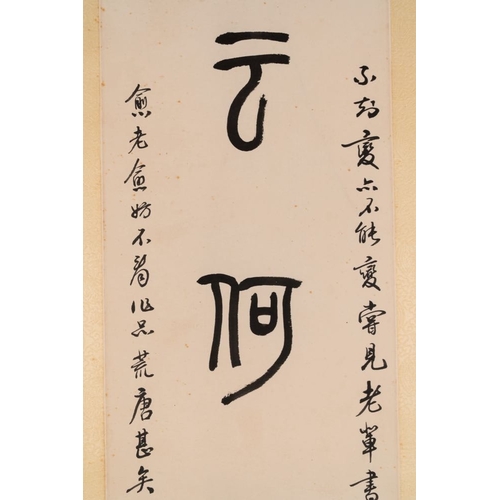 不知變亦不能變嘗見老輩書
云何
愈老愈妙不肖作品荒唐甚矣